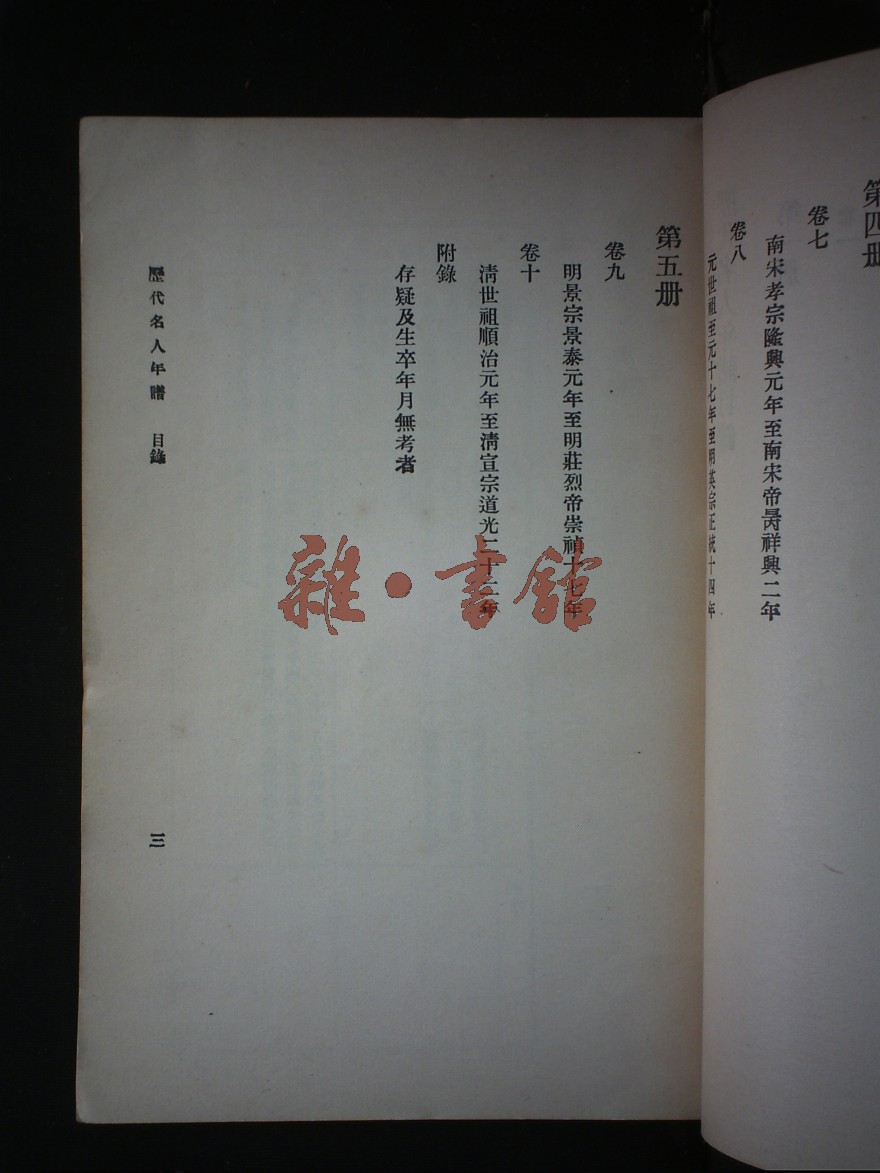 第四册
卷七
南宋孝宗隆興元年至南宋帝昺祥興二年
卷八
元世祖至元十七年至明英宗正統十四年
第五册
卷九
明景宗景泰元年至明莊烈帝崇禎十七年
卷十
清世祖順治元年至清宣宗道光二十二年
附錄
存疑及生卒年月無考者
歷代名人年譜 目錄
三
雜·書館